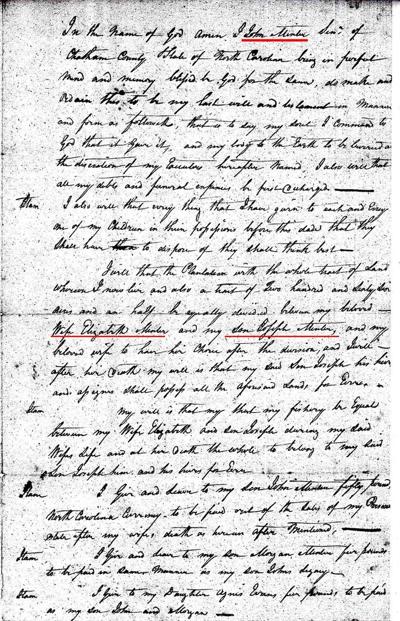 In the Name of God Amen I John Minter Senr. of
Chatham County State of North Carolina being in perfect
mind and memory bless'd be God for the same, do make and
ordain this to be my last will and testament in Manner
and form as followeth, that is to say, my soul I commend to
God that it Gave it, and my body to the Earth to be burried at
the discretion of my Executors hereafter Named, I also will that
all my debts and funeral expences be first discharged
Itam I also will that every thing that I have gave to each and Every
one of my Children in their possessions before this date that they
shall have to dispose of they shall think best
I will that the Plantation with the whole tract of Land
whereon I now live and also a tract of Two hundred and Sixty
acres and an half be equally devided between my beloved
Wife Elizabeth Minter and my son Joseph Minter, and my
beloved wife to have her Choice after the division, and
after her death my will is that my said son Joseph his heirs
and assigns shall possess all the aforesaid Lands for Ever
Itam my will is that my fishery be Equal
between my Wife Elizabeth and son Joseph during my said
Wifes life and at her death the whole to belong to my said
Son Joseph him and his heirs for Ever
Itam I Give and devise to my son John Minter fifty pound
North Carolina Currency to be paid out of the sales of my
after my wifes death as herein after Mentioned,
Itam I Give and devise to my son Morgan Minter five pounds
to be paid in same Manner as my son Johns legacy
Itam I Give to my Daughter Agnis Evans five pounds to be paid
as my son John and Morgan